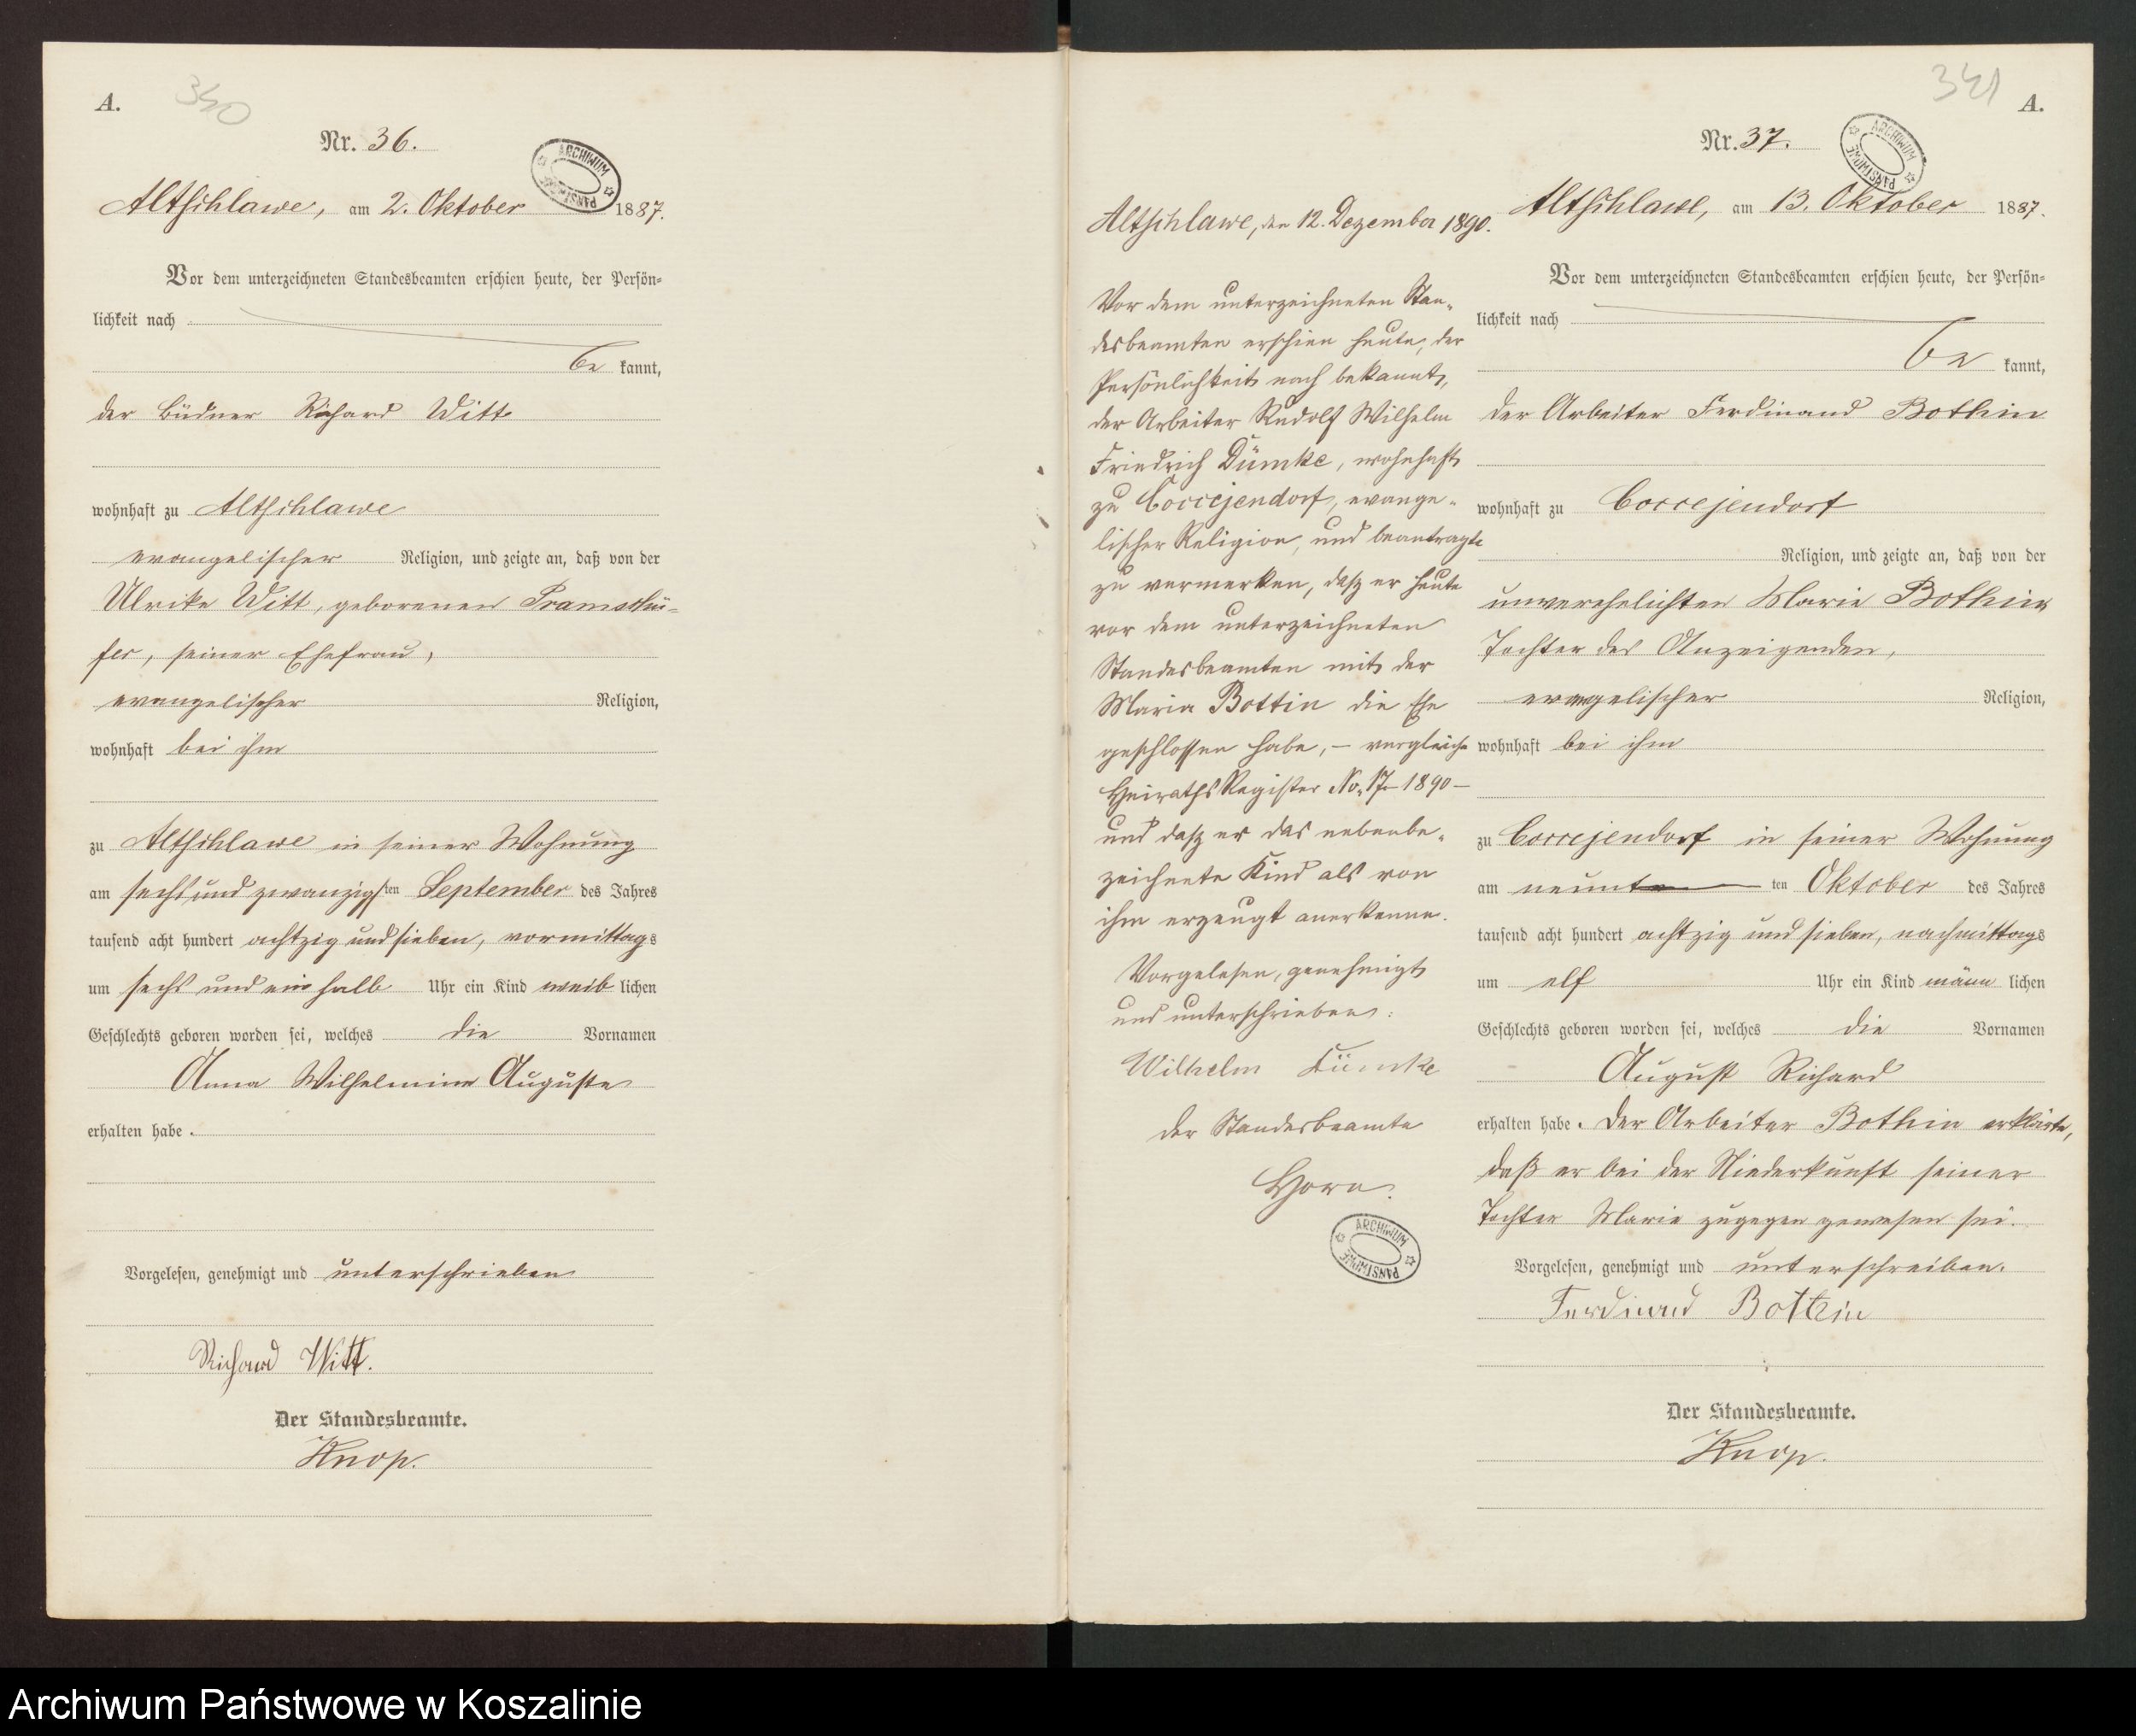 A.
350
Nr. 36.
ARCHIWUM PAŃSTWOWE
Altschlawe, am 2. Oktober 1887.
Vor dem unterzeichneten Standesbeamten erschien heute, der Persön-
lichkeit nach
be kannt,
der Büdner Richard Witt
wohnhaft zu Altschlawe
evangelischer Religion, und zeigte an, daß von der
Ulrike Witt, geborenen
seiner Ehefrau,
evangelischer Religion,
wohnhaft bei ihm
zu Altschlawe in seiner Wohnung
am sechs und zwanzigsten September des Jahres
tausend acht hundert achtzig und sieben, vormittags
um sechs und ein halb Uhr ein Kind weib lichen
Geschlechts geboren worden sei, welches die Vornamen
Anna Wilhelmine Auguste
erhalten habe.
Vorgelesen, genehmigt und unterschrieben
Richard Witt.
Der Standesbeamte.
Knop.
341
A.
Nr. 37.
ARCHIWUM PAŃSTWOWE
Altschlawe, den 12. Dezember 1890.
Vor dem unterzeichneten Stan-
desbeamten erschien heute, der
Persönlichkeit nach bekannt,
der Arbeiter Rudolf Wilhelm
Friedrich Dümke, wohnhaft
zu Coccejendorf, evange-
lischer Religion, und beantragte
zu vermerken, dasz er heute
vor dem unterzeichneten
Standesbeamten mit der
Maria Bottin die Ehe
geschlossen habe, – vergleiche
Heiraths Register No. 17 1890 –
und dasz er das nebenbe-
zeichnete Kind als von
ihm erzeugt anerkenne.
Vorgelesen, genehmigt
und unterschrieben:
Wilhelm Dümke
der Standesbeamte
Horn.
ARCHIWUM PAŃSTWOWE
Altschlawe, am 13. Oktober 1887.
Vor dem unterzeichneten Standesbeamten erschien heute, der Persön-
lichkeit nach
be kannt,
der Arbeiter Ferdinand Bothin
wohnhaft zu Coccejendorf
Religion, und zeigte an, daß von der
unverehelichten Marie Bothin
Tochter des Anzeigenden,
evangelischer Religion,
wohnhaft bei ihm
zu Coccejendorf in seiner Wohnung
am neunten ten Oktober des Jahres
tausend acht hundert achtzig und sieben, nachmittags
um elf Uhr ein Kind männ lichen
Geschlechts geboren worden sei, welches die Vornamen
August Richard
erhalten habe. Der Arbeiter Bothin erklärte,
daß er bei der Niederkunft seiner
Tochter Marie zugegen gewesen sei.
Vorgelesen, genehmigt und unterschreiben.
Ferdinand Bothin
Der Standesbeamte.
Knop.
Archiwum Państwowe w Koszalinie